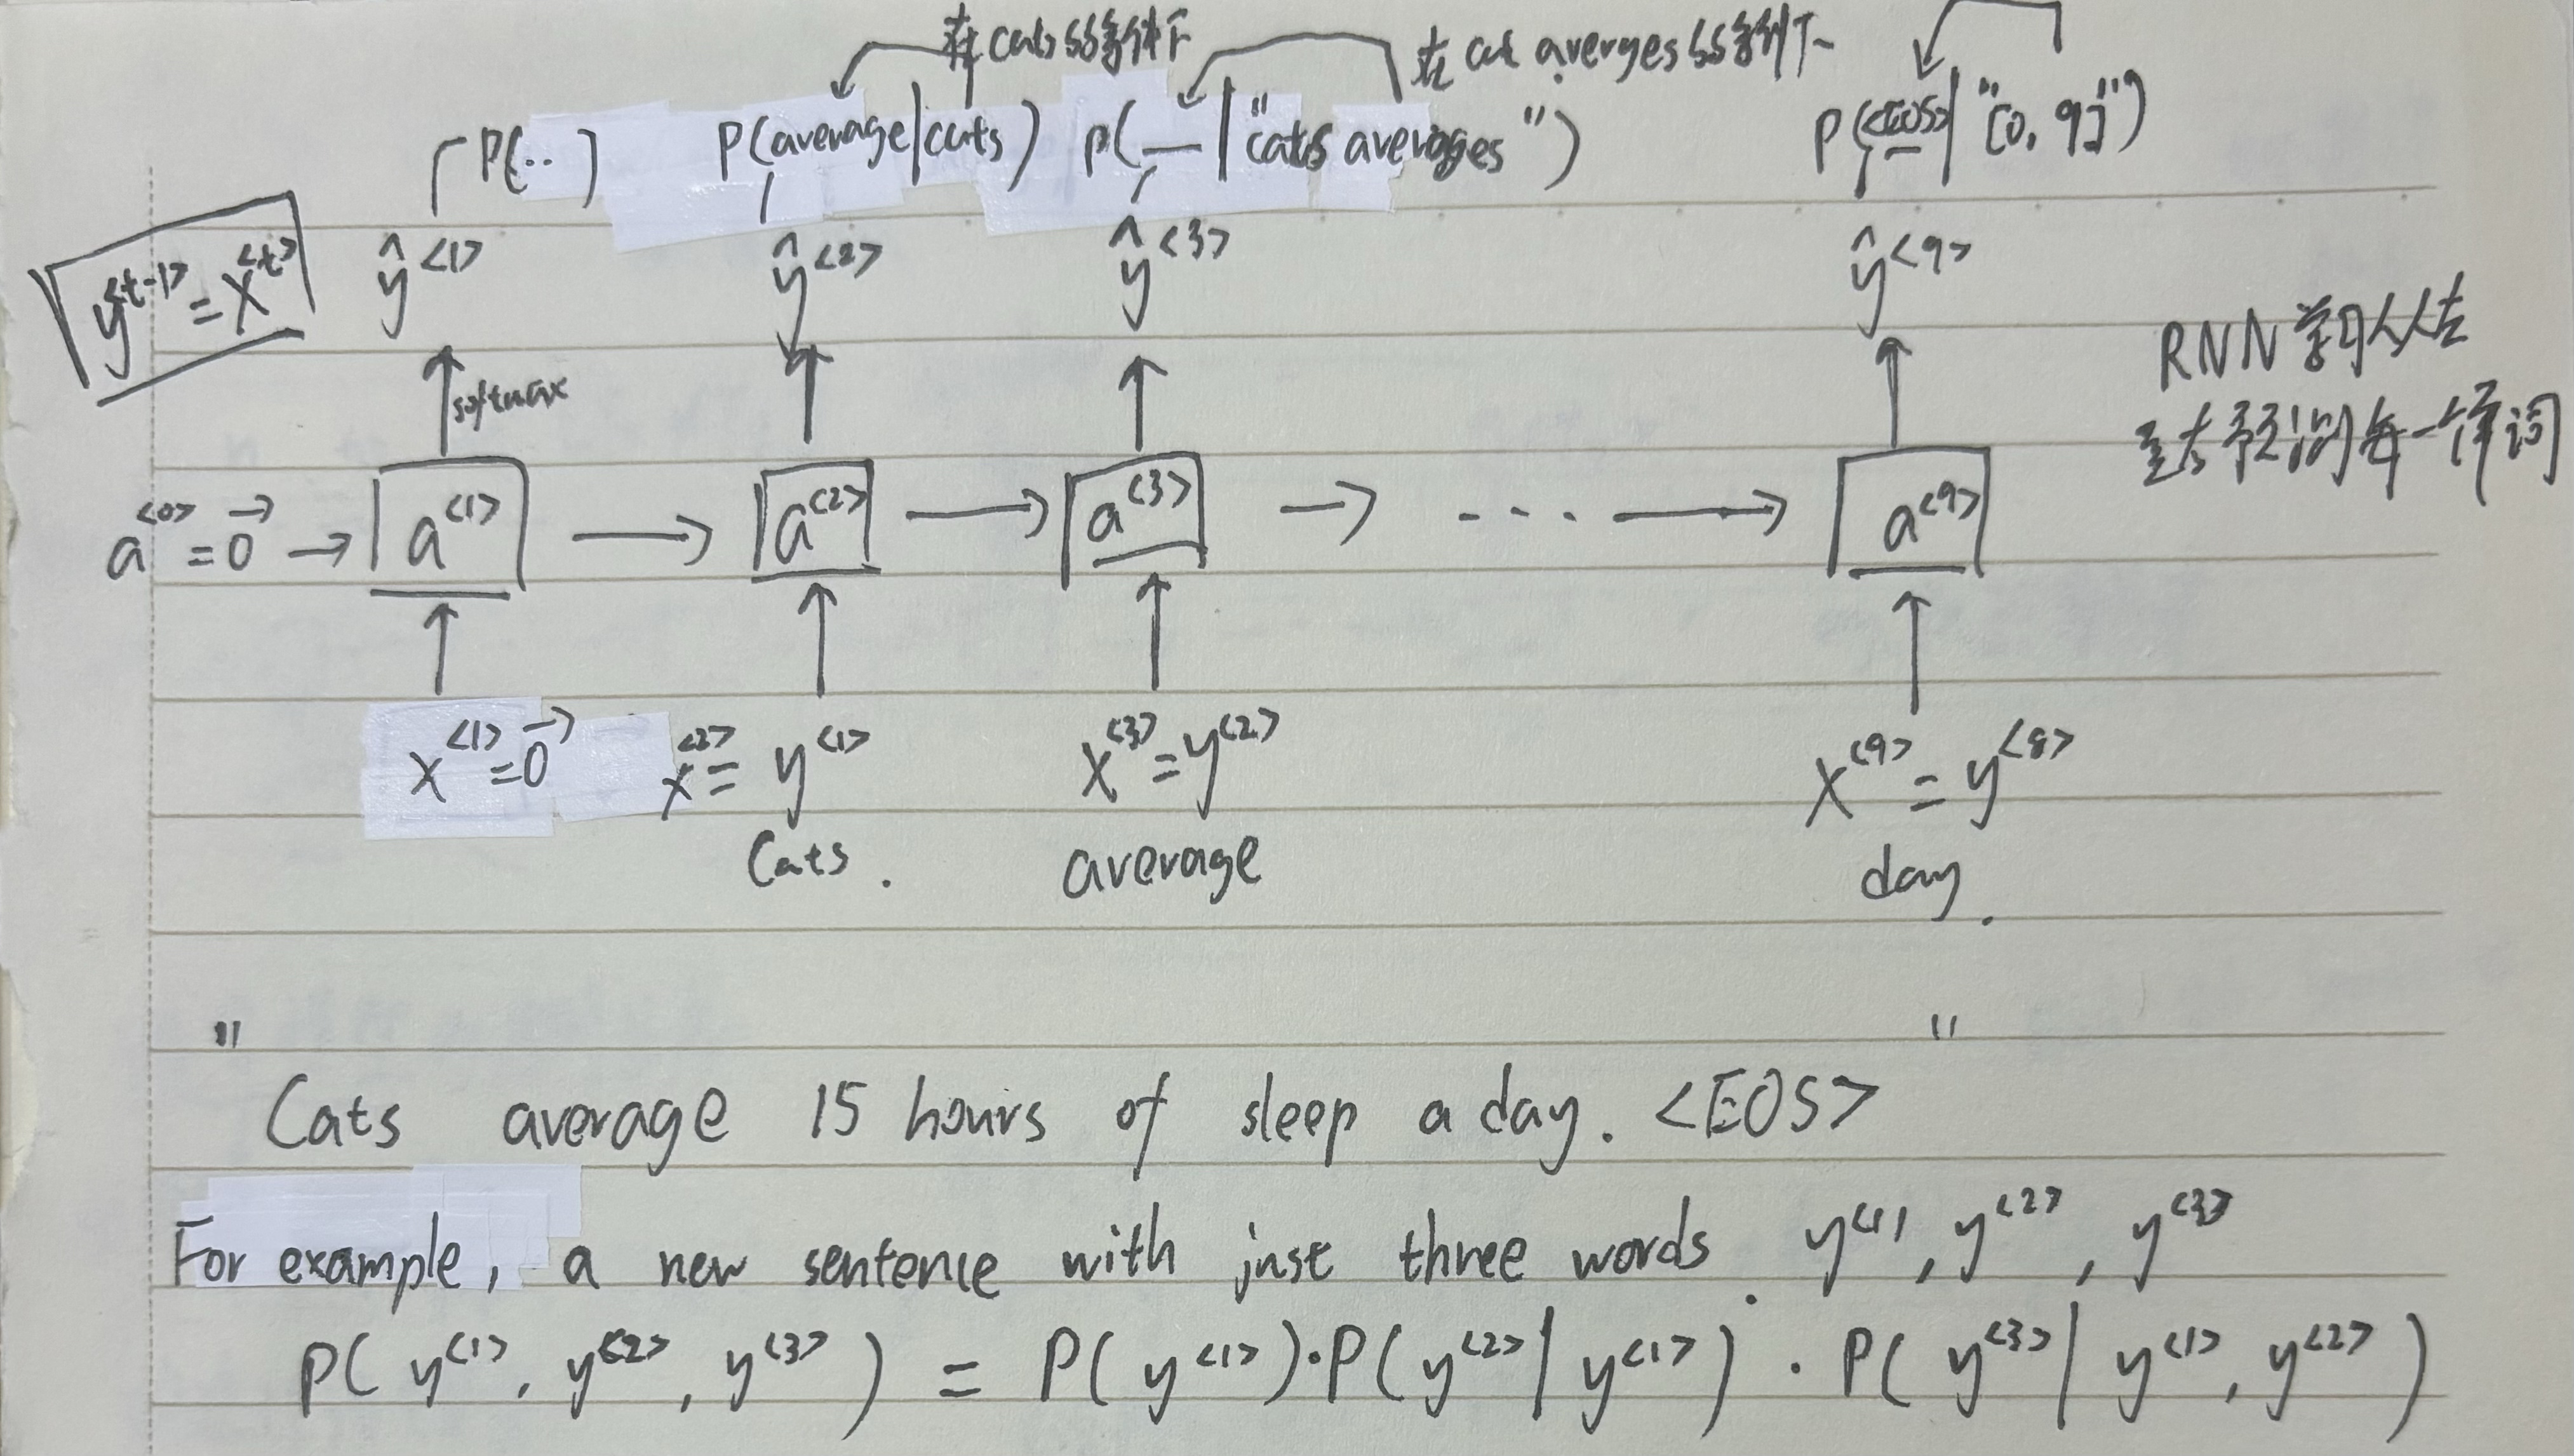 在 cats 的条件下 在 cat averges 的条件下
P(..) P(average|cats) P(__|"cats averages") P(<EOS>|"[0, 9]")
y<t-1> = x<t> ŷ<1> ŷ<2> ŷ<3> ŷ<9>
softmax
RNN 学习从左
至右预测每一个单词
a<0> = 0⃗ → a<1> → a<2> → a<3> → .... → a<9>
x<1> = 0⃗ x<2> = y<1> x<3> = y<2> x<9> = y<8>
Cats. average day.
"Cats average 15 hours of sleep a day. <EOS>"
For example, a new sentence with just three words. y<1>, y<2>, y<3>
P( y<1>, y<2>, y<3> ) = P( y<1> )·P( y<2> | y<1> ) · P( y<3> | y<1>, y<2> )